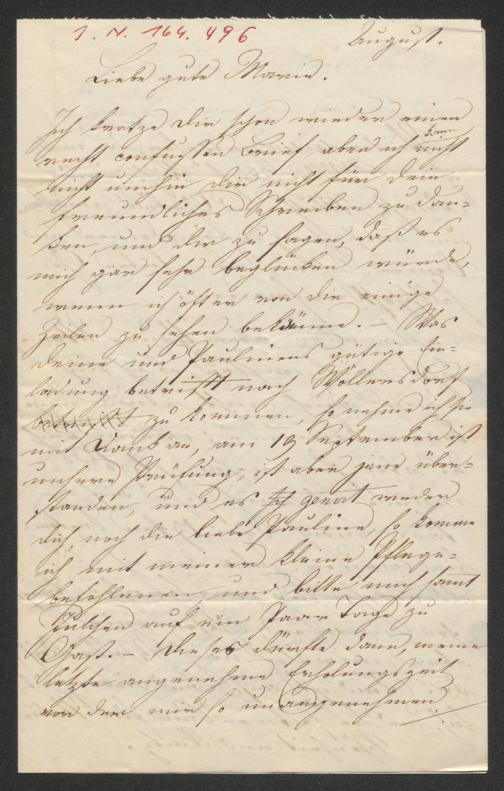 I. N. 164. 496
August.
Liebe gute Marie.
Ich kratze dir schon wieder einen
recht confussen Brief aber ich kann nicht
nicht umhin dir nicht für dein
freundliches Schreiben zu dan-
ken, und dir zu sagen, daß es
mich gar sehr beglücken würde,
wenn ich öfter von dir einige
Zeilen zu sehen bekäme. – Was
deine und Paulinens gütige Ein-
ladung betrifft nach Wöllersdorf
zu kommen, so nehme ich sie
mit Dank an, am 13 September ist
unsere Prüfung, ist aber jene über-
standen, und es genirt weder
dich, noch die liebe Pauline, so komme
ich mit meiner kleine Pflege-
befohlenen und bitte mich samt
Julchen auf ein Paar Tage zu
Gast. – Dieses dürfte dann, meine
letzte angenehme Erholungszeit
vor den mir so unangenehmen